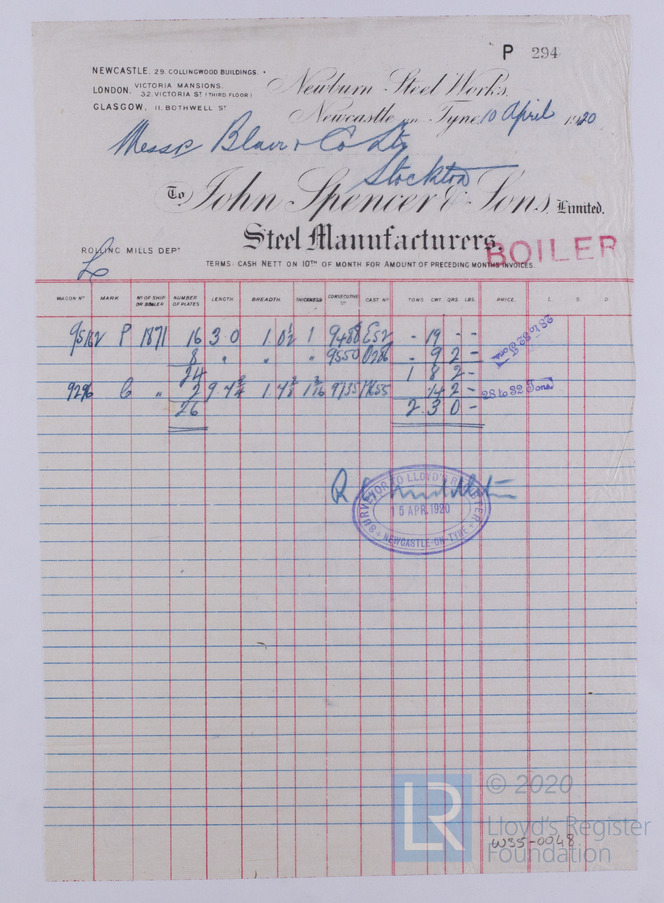 P 294
NEWCASTLE. 29. COLLINGWOOD BUILDINGS.
LONDON. VICTORIA MANSIONS. 32. VICTORIA ST (THIRD FLOOR)
GLASGOW, 11. BOTHWELL ST
Newburn Steel Works,
Newcastle on Tyne, 10 April 1920
Messrs Blair & Co Ltd
Stockton
To John Spencer & Sons, Limited.
Steel Manufacturers.
BOILER
ROLLING MILLS DEPT
TERMS: CASH NETT ON 10TH OF MONTH FOR AMOUNT OF PRECEDING MONTHS INVOICES.
WAGON NO MARK NO OF SHIP OR BOILER NUMBER OF PLATES LENGTH BREADTH THICKNESS CONSECUTIVE NO CAST NO TONS CWT QRS. LBS. PRICE. £ S. D
95162 P 1871 16 3 0 1 0½ 1 9488 E52 - 19 - -
8 " " " 9550 - 9 2 -
28 to 32 Tons
24 1 8 2 -
9296 " 2 9 4 1 4 1 14 2 -
28 to 32 Tons
26 2 3 0 -
SURVEYOR TO LLOYD'S REGISTER
15 APR. 1920
NEWCASTLE-ON-TYNE
LR
© 2020
Lloyd's Register
Foundation
W35-0048